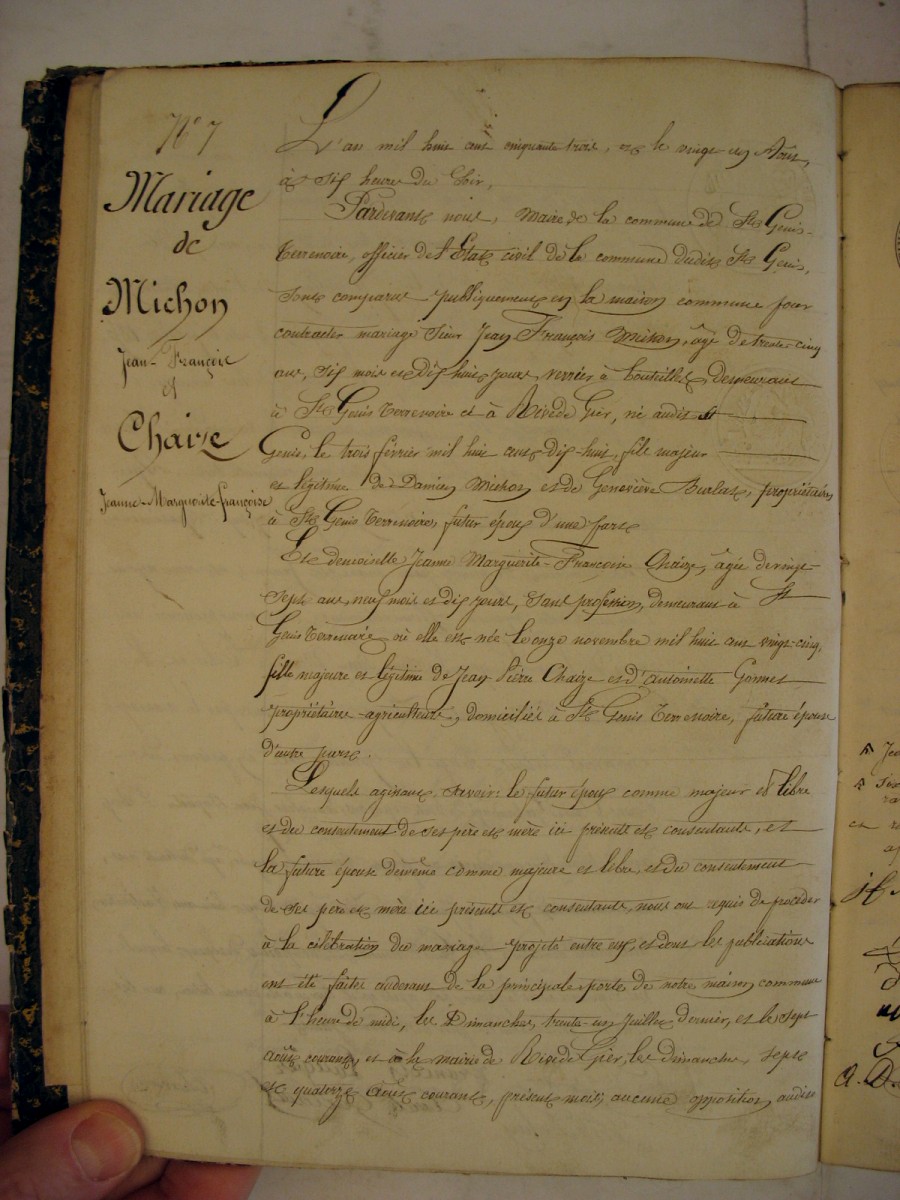 N° 7
Mariage
de
Michon
Jean-François
et
Chaize
Jeanne-Marguerite-françoise
L'an mil huit cent cinquante trois, et le vingt-un Aout,
à six heures du Soir,
Pardevant nous, Maire de la commune de St Genis-
Terrenoire, officier de l'Etat civil de la commune dudit St Genis,
sont comparus publiquement en la maison commune pour
contracter mariage Sieur Jean François Michon, âgé de trente-cinq
ans, six mois et dix huit jours, verrier à bouteilles, demeurant
à St Genis Terrenoire et à Rivedegier, né audit St
Genis, le trois février mil huit cent dix huit, fils majeur
et légitime de Damien Michon et de Geneviève Burlat, propriétaires
à St Genis Terrenoire, futur époux d'une part
Et demoiselle Jeanne Marguerite-Françoise Chaize, âgée de vingt-
sept ans, neuf mois et dix jours, sans profession, demeurant à St
Genis Terrenoire où elle est née le onze novembre mil huit cent vingt-cinq,
fille majeure et légitime de Jean Pierre Chaize et d'antoinette
propriétaires-agriculteurs, domiciliés à St Genis Terrenoire, future épouse
d'autre part.
Lesquels agissant, savoir: le futur époux comme majeur et libre
et du consentement de ses père et mère ici présents et consentants, et
la future épouse de même comme majeure et libre, et du consentement
de ses père et mère ici présents et consentants, nous ont requis de procéder
à la célébration du mariage projeté entre eux, et dont les publications
ont été faites audevant de la principale porte de notre maison commune
à l'heure de midi, les Dimanches, trente-un Juillet dernier, et le sept
août courant, et à la mairie de Rivedegier, les dimanches, sept
et quatorze août courant, présent mois; aucune opposition audit